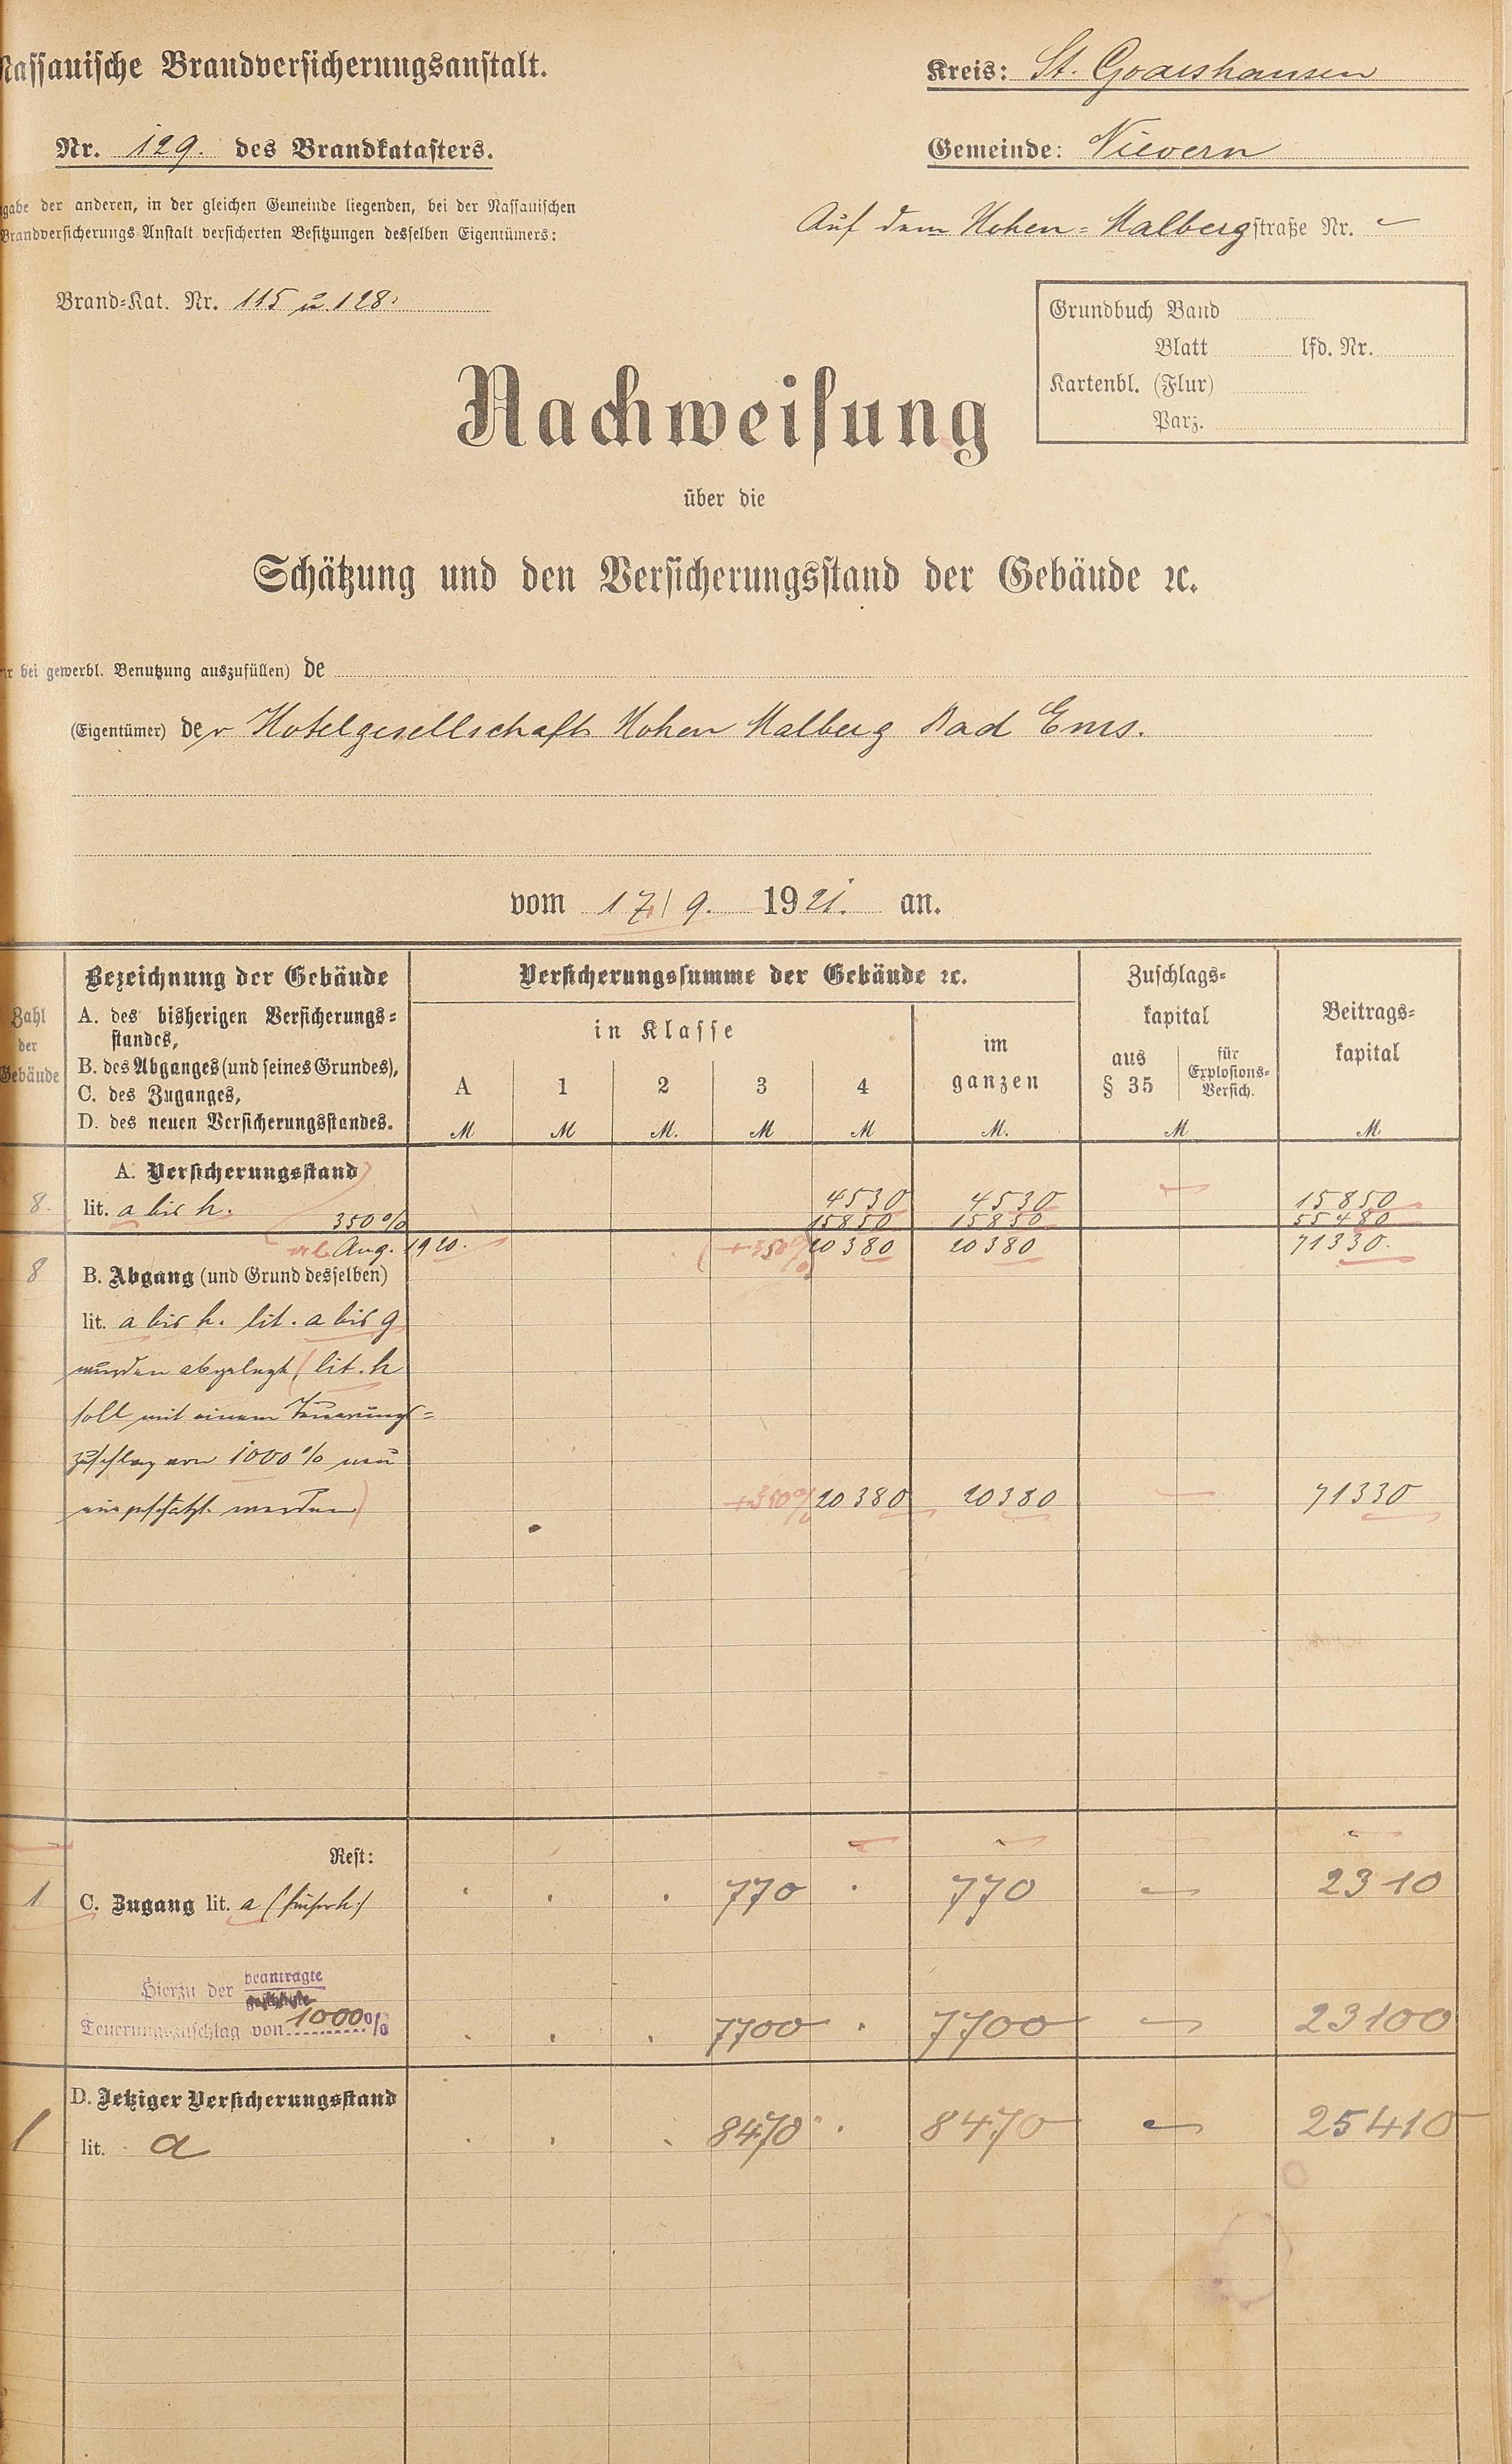 Nassauische Brandversicherungsanstalt.
Kreis: St. Goarshausen
Nr. 129. des Brandkatasters.
Gemeinde: Nievern
gabe der anderen, in der gleichen Gemeinde liegenden, bei der Nassauischen
Brandversicherungs-Anstalt versicherten Besitzungen desselben Eigentümers:
Auf dem Hohen-Malbergstraße Nr. –
Brand-Kat. Nr. 115 u. 128.
Grundbuch Band
Blatt lfd. Nr.
Kartenbl. (Flur)
Parz.
Nachweisung
über die
Schätzung und den Versicherungsstand der Gebäude ꝛc.
bei gewerbl. Benutzung auszufüllen) de
(Eigentümer) der Hotelgesellschaft Hohen Malberg Bad Ems.
vom 17/9. 1921. an.
Zahl der Gebäude
Bezeichnung der Gebäude
A. des bisherigen Versicherungs=
standes,
B. des Abganges (und seines Grundes),
C. des Zuganges,
D. des neuen Versicherungsstandes.
Versicherungssumme der Gebäude ꝛc.
in Klasse
A 1 2 3 4
im
ganzen
Zuschlags=
kapital
aus
§ 35
für
Explosions=
Versich.
Beitrags=
kapital
M M M. M M M. M M
A. Versicherungsstand
8. lit. a bis h. 4530 4530 – 15850
350% 15850 15850 55480
Aug. 1920. (+350% 20380 20380 71330.
8 B. Abgang (und Grund desselben)
lit. a bis h. lit. a bis g
wurden abgelegt (lit. h
soll mit einem Teuerungs=
zuschlag von 1000% neu
eingeschätzt werden)
+350% 20380 20380 – 71330
Rest: – – – –
1 C. Zugang lit. a (früher h.) 770 770 – 2310
Hierzu der beantragte
Teuerungszuschlag von 1000% 7700 7700 – 23100
D. Jetziger Versicherungsstand
1 lit. a 8470 8470 – 25410